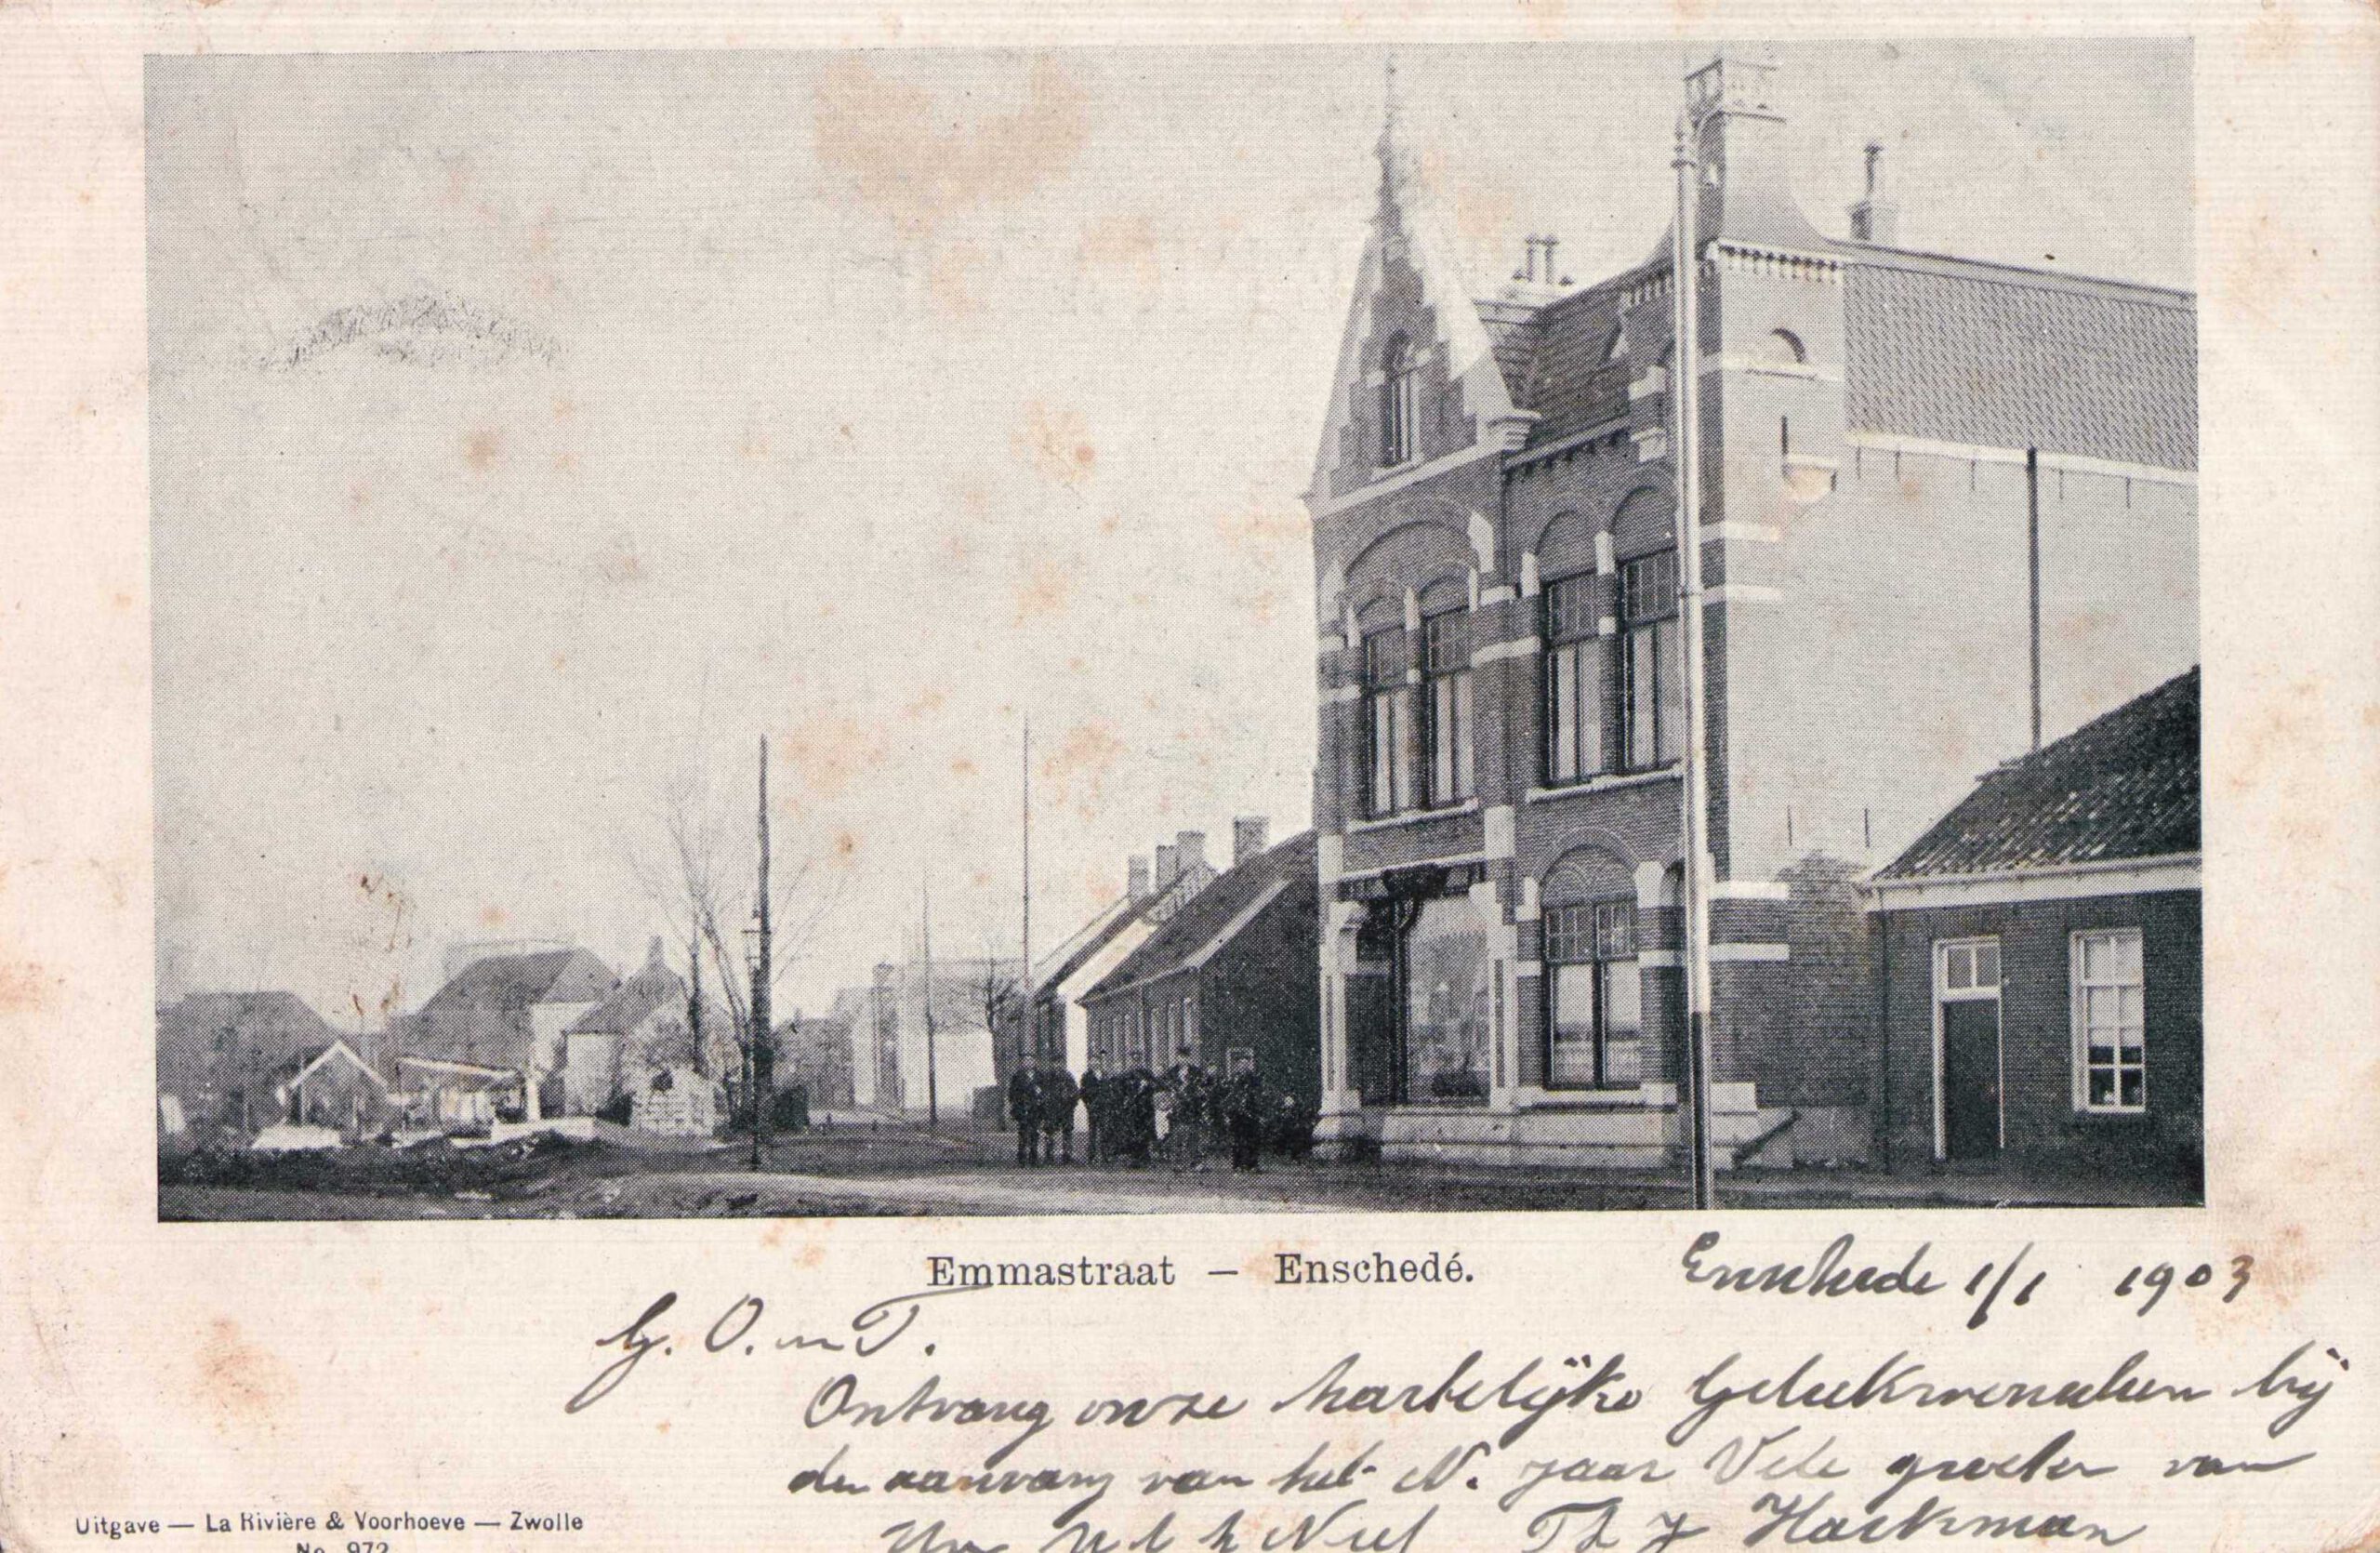 Emmastraat — Enschedé.
Enschede 1/1 1903
G. O. en T.
Ontvang onze hartelijke Gelukwenschen bij
den aanvang van het N. jaar Vele groeten van
Uw Neef Th J Haekman
Uitgave — La Rivière & Voorhoeve — Zwolle
No. 972